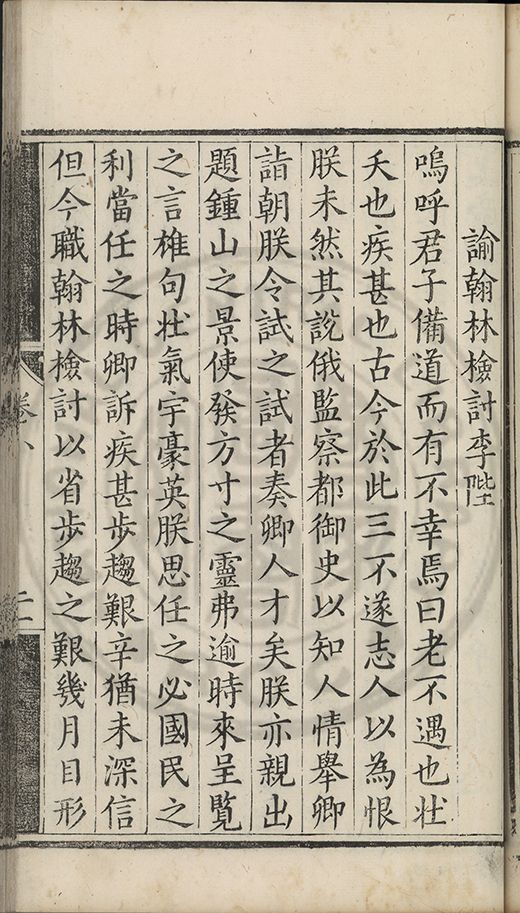 諭翰林檢討李陞
嗚呼君子備道而有不幸焉曰老不遇也壯
夭也疾甚也古今於此三不遂志人以為恨
朕未然其說俄監察都御史以知人情舉卿
詣朝朕令試之試者奏卿人才矣朕亦親出
題鍾山之景使發方寸之靈弗逾時來呈覽
之言雄句壯氣宇豪英朕思任之必國民之
利當任之時卿訴疾甚步趨艱辛猶未深信
但今職翰林檢討以省步趨之艱幾月目形
卷八
二